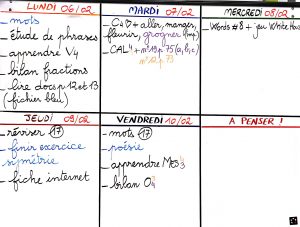 LUNDI 06/02
_ mots
_ étude de phrases
_ apprendre V4
_ bilan fractions
_ lire docs p 12 et 13
(fichier bleu)
MARDI 07/02
_ aller, manger,
fleurir, grogner
_ CAL4 + n°19 p 75 (a, b, c)
n°12 p 73
MERCREDI 08/02
_ Words #8 + jeu White House
JEUDI 09/02
_ réviser 17
_ finir exercice
symétrie
_ fiche internet
VENDREDI 10/02
_ mots 17
_ poésie
_ apprendre Mes
_ bilan
A PENSER !